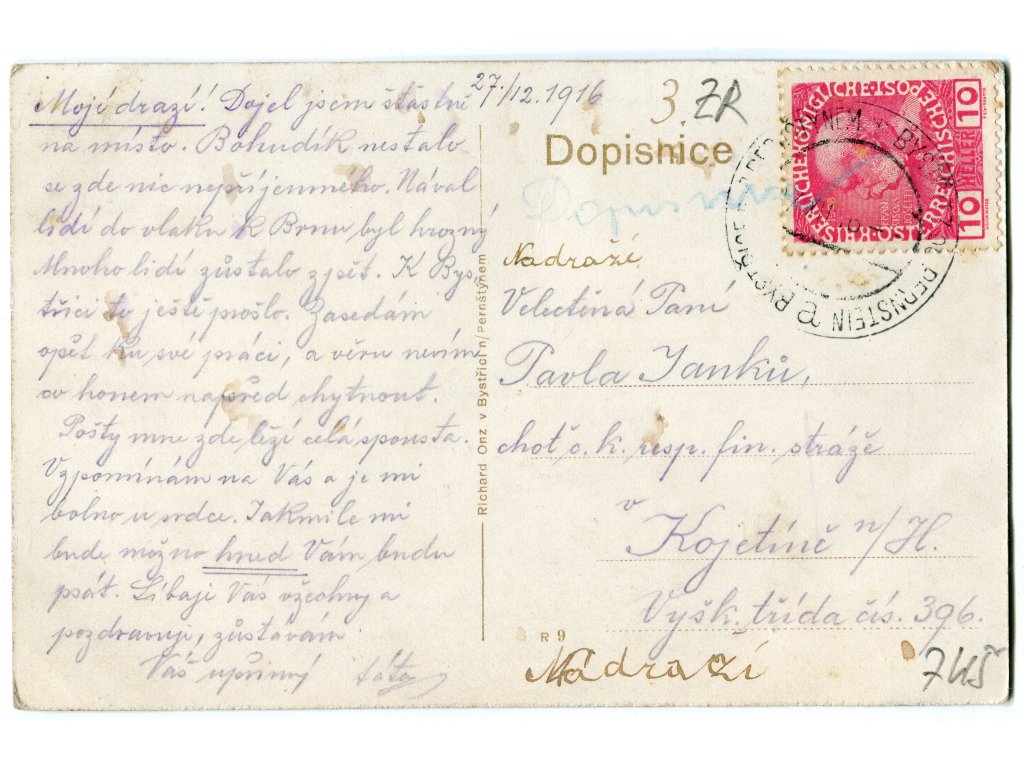 27./12. 1916
Moji drazí! Dojel jsem šťastně
na místo. Bohudík nestalo
se zde nic nepříjemného. Nával
lidí do vlaku k Brnu byl hrozný
Mnoho lidí zůstalo zpět. K Bys,
třici to ještě prošlo. Zasedám
opět ku své práci, a věru nevím
co honem napřed chytnout.
Pošty mne zde leží celá spousta.
Vzpomínám na Vás a je mi
bolno u srdce. Jakmile mi
bude možno hned Vám budu
psát. Líbaje Vás všechny a
pozdravuji, zůstávám
Váš upřímný táta
Richard Onz v Bystřici n/Pernštýnem
3. ZR
Dopisnice
Dopisnice
Nadraží
Velectěná Paní
Pavla Janků,
choť c. k. resp. fin. stráže
v
Kojetíně n/H.
Vyšk. třída čís. 396.
R 9
Nádraží
7Kš
KAISERLICHE KÖNIGLICHE ÖSTERREICHISCHE POST
10 HELLER 10
PERNSTEIN